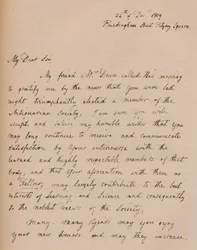 My Dear Sir,
My friend Mr. Dawn called this morning
to gratify me by the news that you were last
night triumphantly elected a member of the
Antiquarian Society. I am sure you will
accept and believe my humble wishes that you
may long continue to receive and communicate
satisfaction by your intercourse with the
learned and highly respectable members of that
body, and that your association with them as
a Fellow, may largely contribute to the best
interests of learning and science and consequently
to the noblest views of the Society.
Many, many years may you enjoy
your new honors and may they increase.